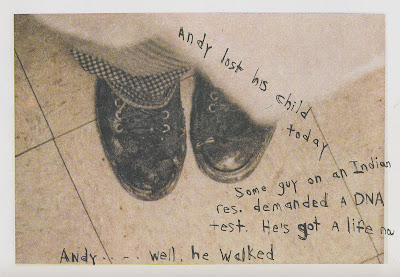 Andy lost his child
today
Some guy on an Indian
res. demanded a DNA
test. He's got a life no
Andy..... well, he walked